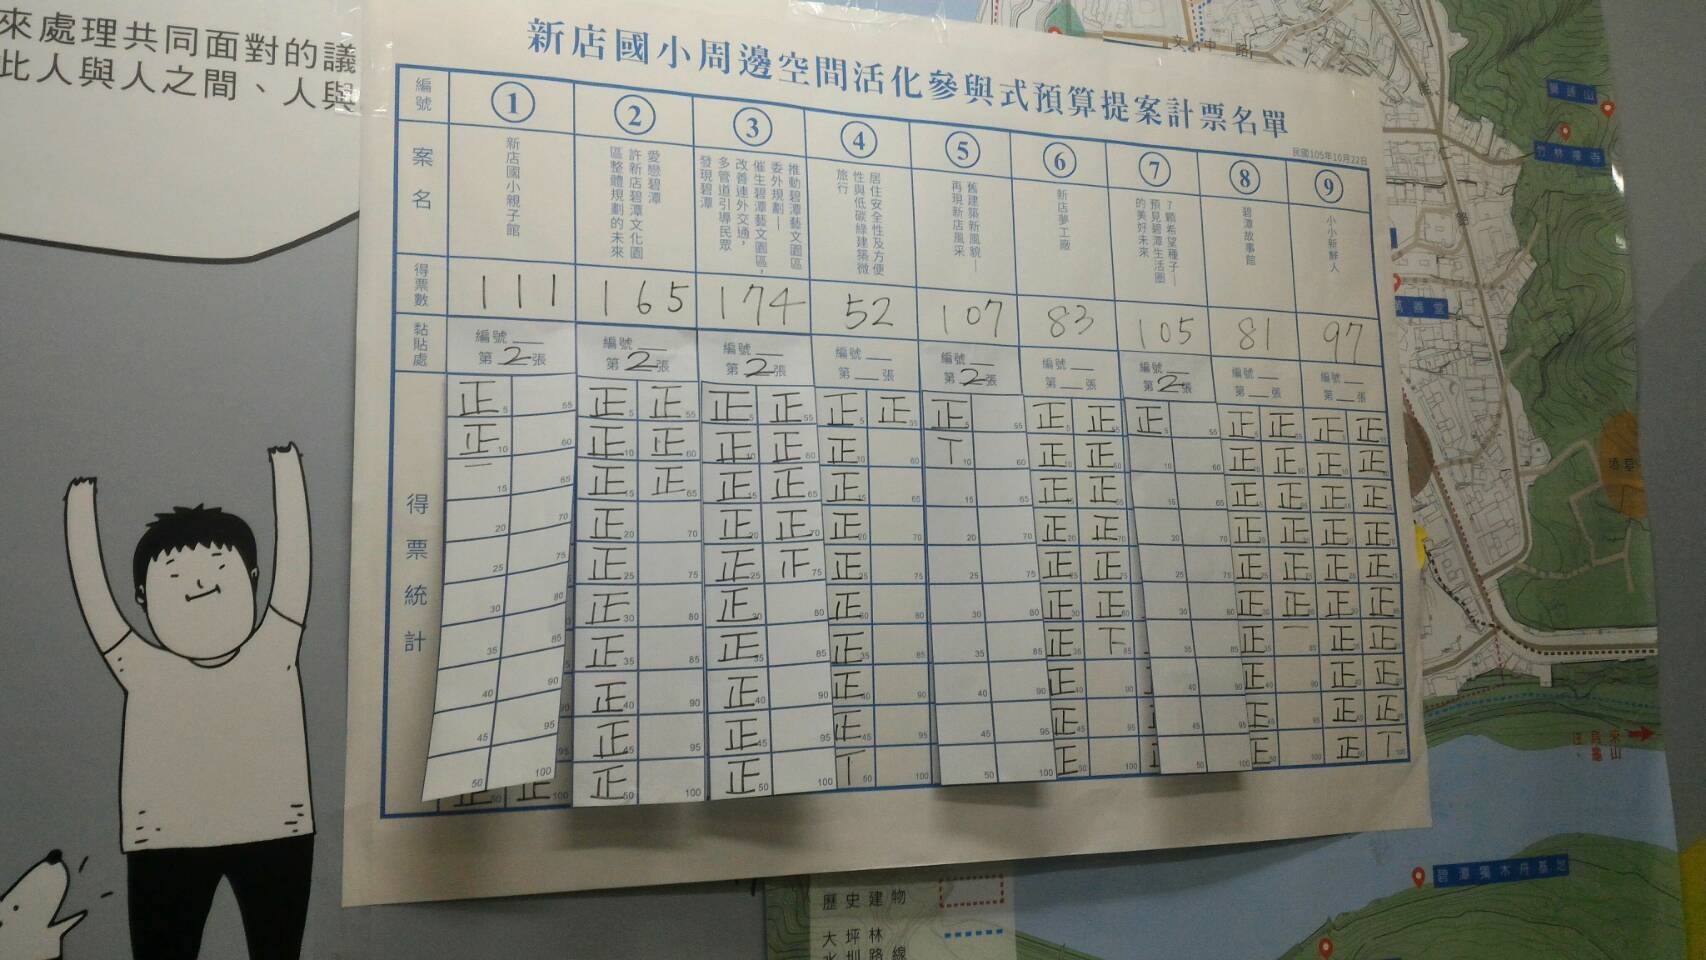 來處理共同面對的議
此人與人之間、人與
新店國小周邊空間活化參與式預算提案計票名單
民國105年10月22日
編號 ① ② ③ ④ ⑤ ⑥ ⑦ ⑧ ⑨
案名
新店國小親子館
愛戀碧潭
許新店碧潭文化園
區整體規劃的未來
推動碧潭藝文園區
委外規劃—
催生碧潭藝文園區，
改善連外交通，
多管道引導民眾
發現碧潭
居住安全性及方便
性與低碳綠建築微
旅行
舊建築新風貌—
再現新店風采
新店夢工廠
7顆希望種子—
預見碧潭生活圈
的美好未來
碧潭故事館
小小新鮮人
得票數 111 165 174 52 107 83 105 81 97
黏貼處
編號__ 編號__ 編號__ 編號__ 編號__ 編號__ 編號__ 編號__ 編號__
第2張 第2張 第2張 第__張 第2張 第__張 第2張 第__張 第__張
得票統計
歷史建物
大坪林
水圳路線
文中路
竹林禪寺
墳墓
碧潭獨木舟基地